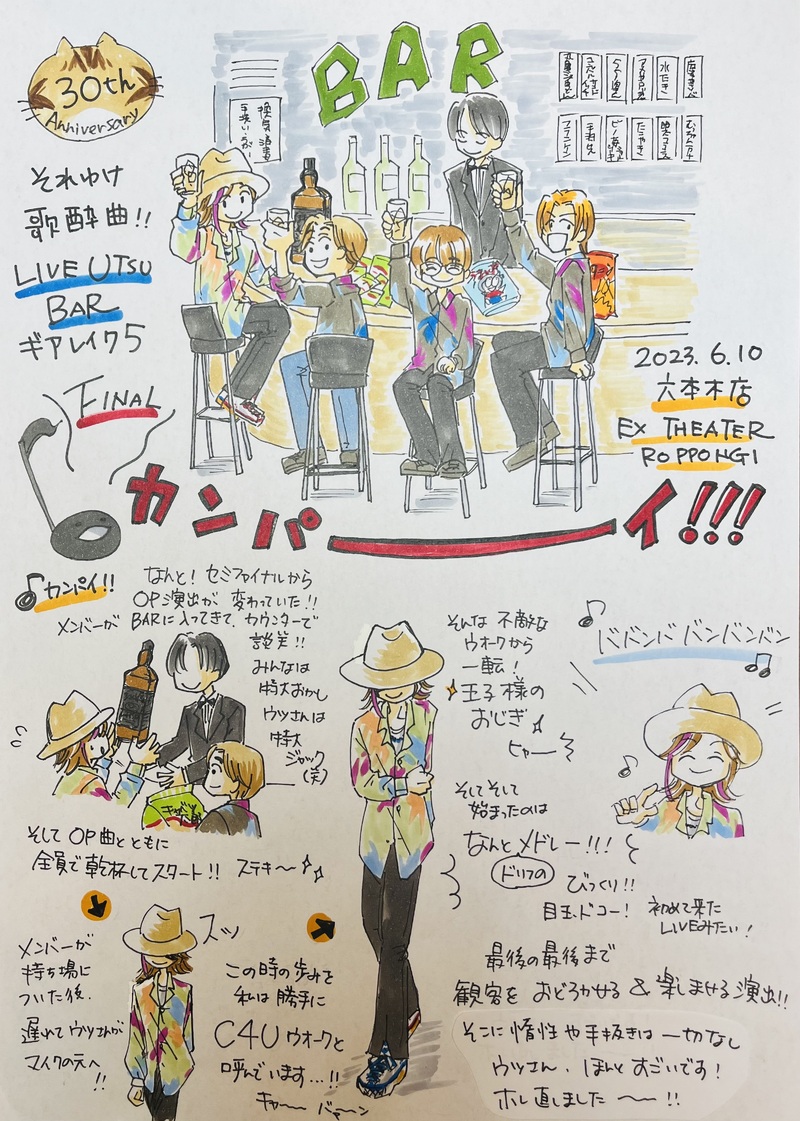 30th
Anniversary
それゆけ
歌酔曲!!
LIVE UTSU
BAR
ギアレイワ5
FINAL
BAR
換気 消毒
水たき
たこやき
フランケン
2023.6.10
六本木店
EX THEATER
ROPPONGI
カンパーイ!!!
カンパイ!!
なんと! セミファイナルから
OP演出が 変わっていた!!
メンバーが BARに入ってきて、カウンターで
談笑!!
みんなは
特大おかし
ウツさんは
特大
ジャック
(笑)
そして OP曲とともに
全員で乾杯してスタート!! ステキ〜
メンバーが
持ち場に
ついた後、
遅れてウツさんが
マイクの元へ
!!
スッ
この時の歩みを
私は勝手に
C4Uウオークと
呼んでいます…!!
キャー バァーン
そんな 不敵な
ウオークから
一転!
王子様の
おじぎ
ヒャー
ドバンド バンバンバン
そしてそして
始まったのは
なんとメドレー!!!
ドリフの
びっくり!!
目玉、ドコー!
初めて来た
LIVEみたい!
最後の最後まで
観客を おどろかせる & 楽しませる演出!!
そこに 惰性や手抜きは 一切なし
ウツさん、ほんと すごいです!
ホレ直しました 〜!!